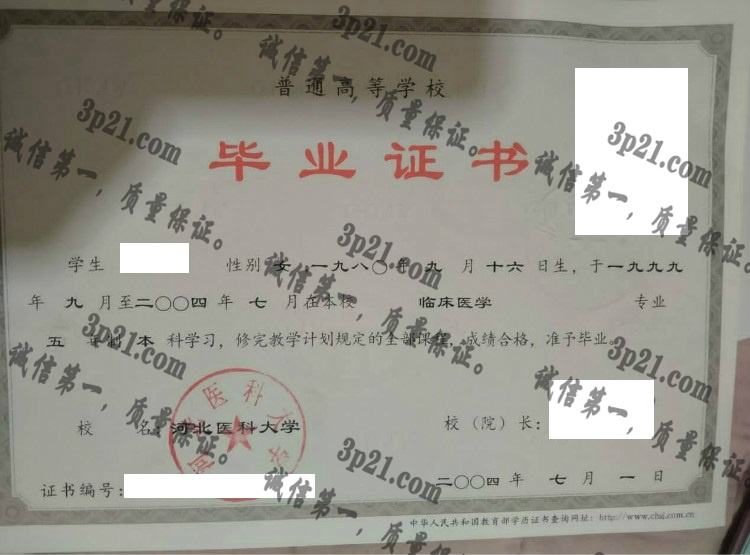 普通高等学校
毕业证书
学生 性别 女,一九八〇年 九 月 十六 日生,于一九九九
年 九 月至二〇〇四 年 七 月在本校 临床医学 专业
五 年制 本 科学习,修完教学计划规定的全部课程,成绩合格,准予毕业。
校 名:河北医科大学 校(院)长:
证书编号: 二〇〇四年 七 月 一 日
中华人民共和国教育部学历证书查询网址:http://www.chsi.com.cn
3p21.com
诚信第一,质量保证。
3p21.com
诚信第一,质量保证。
3p21.com
诚信第一,质量保证。
3p21.com
诚信第一,质量保证。
3p21.com
诚信第一,质量保证。
3p21.com
诚信第一,质量保证。
3p21.com
诚信第一,质量保证。